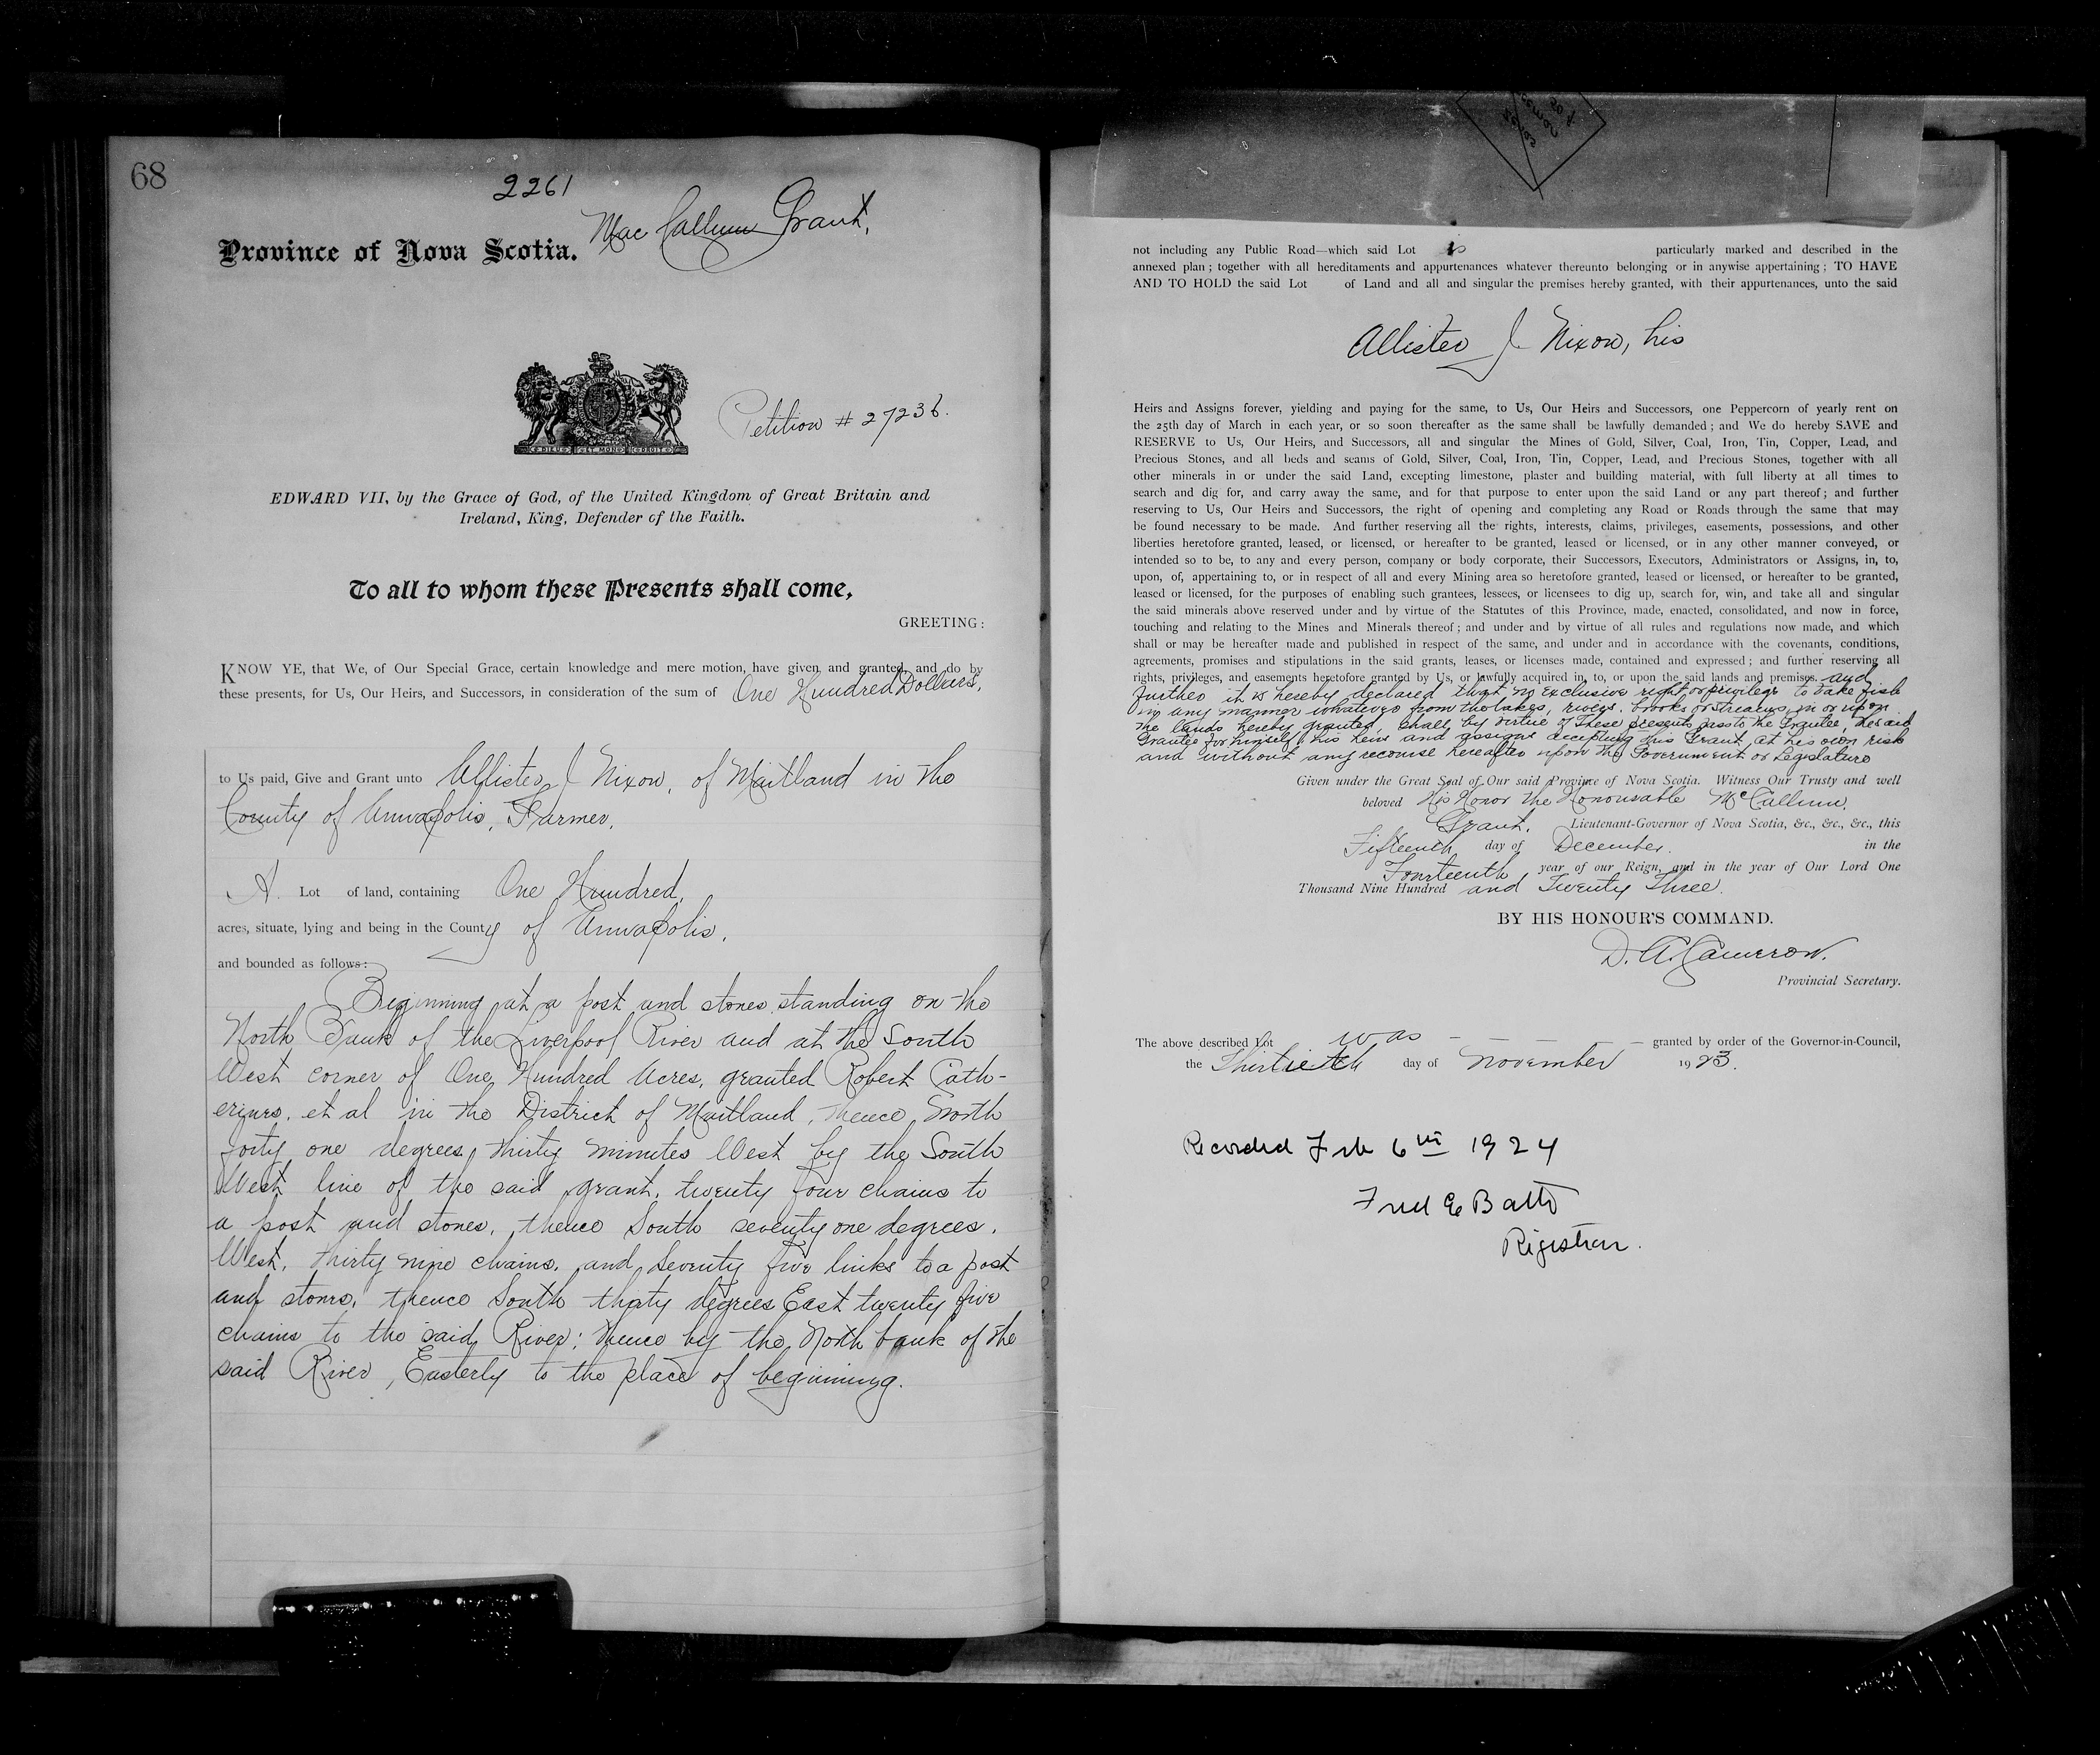 68
2261
Mac Callum Grant,
Province of Nova Scotia.
Petition # 27236.
DIEU ET MON DROIT
EDWARD VII, by the Grace of God, of the United Kingdom of Great Britain and
Ireland, King, Defender of the Faith.
To all to whom these Presents shall come,
GREETING:
KNOW YE, that We, of Our Special Grace, certain knowledge and mere motion, have given and granted, and do by
these presents, for Us, Our Heirs, and Successors, in consideration of the sum of One Hundred Dollars,
to Us paid, Give and Grant unto Allister J Nixon, of Maitland in the
County of Annapolis, Farmer,
A Lot of land, containing One Hundred,
acres, situate, lying and being in the County of Annapolis,
and bounded as follows:
Beginning at a post and stones standing on the
North Bank of the Liverpool River and at the South
West corner of One Hundred Acres, granted Robert Cath-
erines, et al in the District of Maitland, thence North
forty one degrees, thirty minutes West by the South
West line of the said grant, twenty four chains to
a post and stones, thence South seventy one degrees,
West, thirty nine chains, and seventy five links to a post
and stones, thence South thirty degrees East twenty five
chains to the said River; thence by the North bank of the
said River, Easterly to the place of beginning.
not including any Public Road—which said Lot is particularly marked and described in the
annexed plan; together with all hereditaments and appurtenances whatever thereunto belonging or in anywise appertaining; TO HAVE
AND TO HOLD the said Lot of Land and all and singular the premises hereby granted, with their appurtenances, unto the said
Allister J Nixon, his
Heirs and Assigns forever, yielding and paying for the same, to Us, Our Heirs and Successors, one Peppercorn of yearly rent on
the 25th day of March in each year, or so soon thereafter as the same shall be lawfully demanded; and We do hereby SAVE and
RESERVE to Us, Our Heirs, and Successors, all and singular the Mines of Gold, Silver, Coal, Iron, Tin, Copper, Lead, and
Precious Stones, and all beds and seams of Gold, Silver, Coal, Iron, Tin, Copper, Lead, and Precious Stones, together with all
other minerals in or under the said Land, excepting limestone, plaster and building material, with full liberty at all times to
search and dig for, and carry away the same, and for that purpose to enter upon the said Land or any part thereof; and further
reserving to Us, Our Heirs and Successors, the right of opening and completing any Road or Roads through the same that may
be found necessary to be made. And further reserving all the rights, interests, claims, privileges, easements, possessions, and other
liberties heretofore granted, leased, or licensed, or hereafter to be granted, leased or licensed, or in any other manner conveyed, or
intended so to be, to any and every person, company or body corporate, their Successors, Executors, Administrators or Assigns, in, to,
upon, of, appertaining to, or in respect of all and every Mining area so heretofore granted, leased or licensed, or hereafter to be granted,
leased or licensed, for the purposes of enabling such grantees, lessees, or licensees to dig up, search for, win, and take all and singular
the said minerals above reserved under and by virtue of the Statutes of this Province, made, enacted, consolidated, and now in force,
touching and relating to the Mines and Minerals thereof; and under and by virtue of all rules and regulations now made, and which
shall or may be hereafter made and published in respect of the same, and under and in accordance with the covenants, conditions,
agreements, promises and stipulations in the said grants, leases, or licenses made, contained and expressed; and further reserving all
rights, privileges, and easements heretofore granted by Us, or lawfully acquired in, to, or upon the said lands and premises. and
further it is hereby declared that no exclusive right or privilege to take fish
in any manner whatever from the lakes, rivers, brooks or streams in or upon
the lands hereby granted, shall by virtue of these presents pass to the Grantee, the said
Grantee for himself his heirs and assigns accepting this Grant at his own risk
and without any recourse hereafter upon the Government or Legislature
Given under the Great Seal of Our said Province of Nova Scotia. Witness Our Trusty and well
beloved His Honor the Honourable McCallum,
Grant, Lieutenant-Governor of Nova Scotia, &c., &c., &c., this
Fifteenth day of December in the
Fourteenth year of our Reign, and in the year of Our Lord One
Thousand Nine Hundred and Twenty Three.
BY HIS HONOUR'S COMMAND.
D. A. Cameron.
Provincial Secretary.
The above described Lot was granted by order of the Governor-in-Council,
the Thirtieth day of November 1923.
Recorded Feb 6th 1924
Fred E Batto
Registrar.